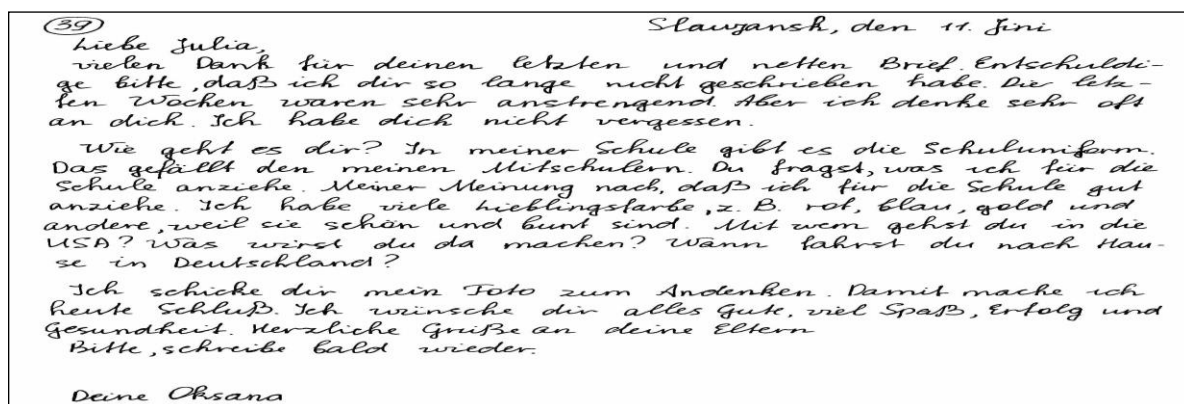 39 Slawjansk, den 11. Jini
Liebe Julia,
vielen Dank für deinen letzten und netten Brief. Entschuldi-
ge bitte, daß ich dir so lange nicht geschrieben habe. Die letz-
ten Wochen waren sehr anstrengend. Aber ich denke sehr oft
an dich. Ich habe dich nicht vergessen.
Wie geht es dir? In meiner Schule gibt es die Schuluniform.
Das gefällt den meinen Mitschulern. Du fragst, was ich für die
Schule anziehe. Meiner Meinung nach, daß ich für die Schule gut
anziehe. Ich habe viele Lieblingsfarbe, z. B. rot, blau, gold und
andere, weil sie schön und bunt sind. Mit wem gehst du in die
USA? Was wirst du da machen? Wann fahrst du nach Hau-
se in Deutschland?
Ich schicke dir mein Foto zum Andenken. Damit mache ich
heute Schluß. Ich wünsche dir alles Gute, viel Spaß, Erfolg und
Gesundheit. Herzliche Grüße an deine Eltern
Bitte, schreibe bald wieder.
Deine Oksana